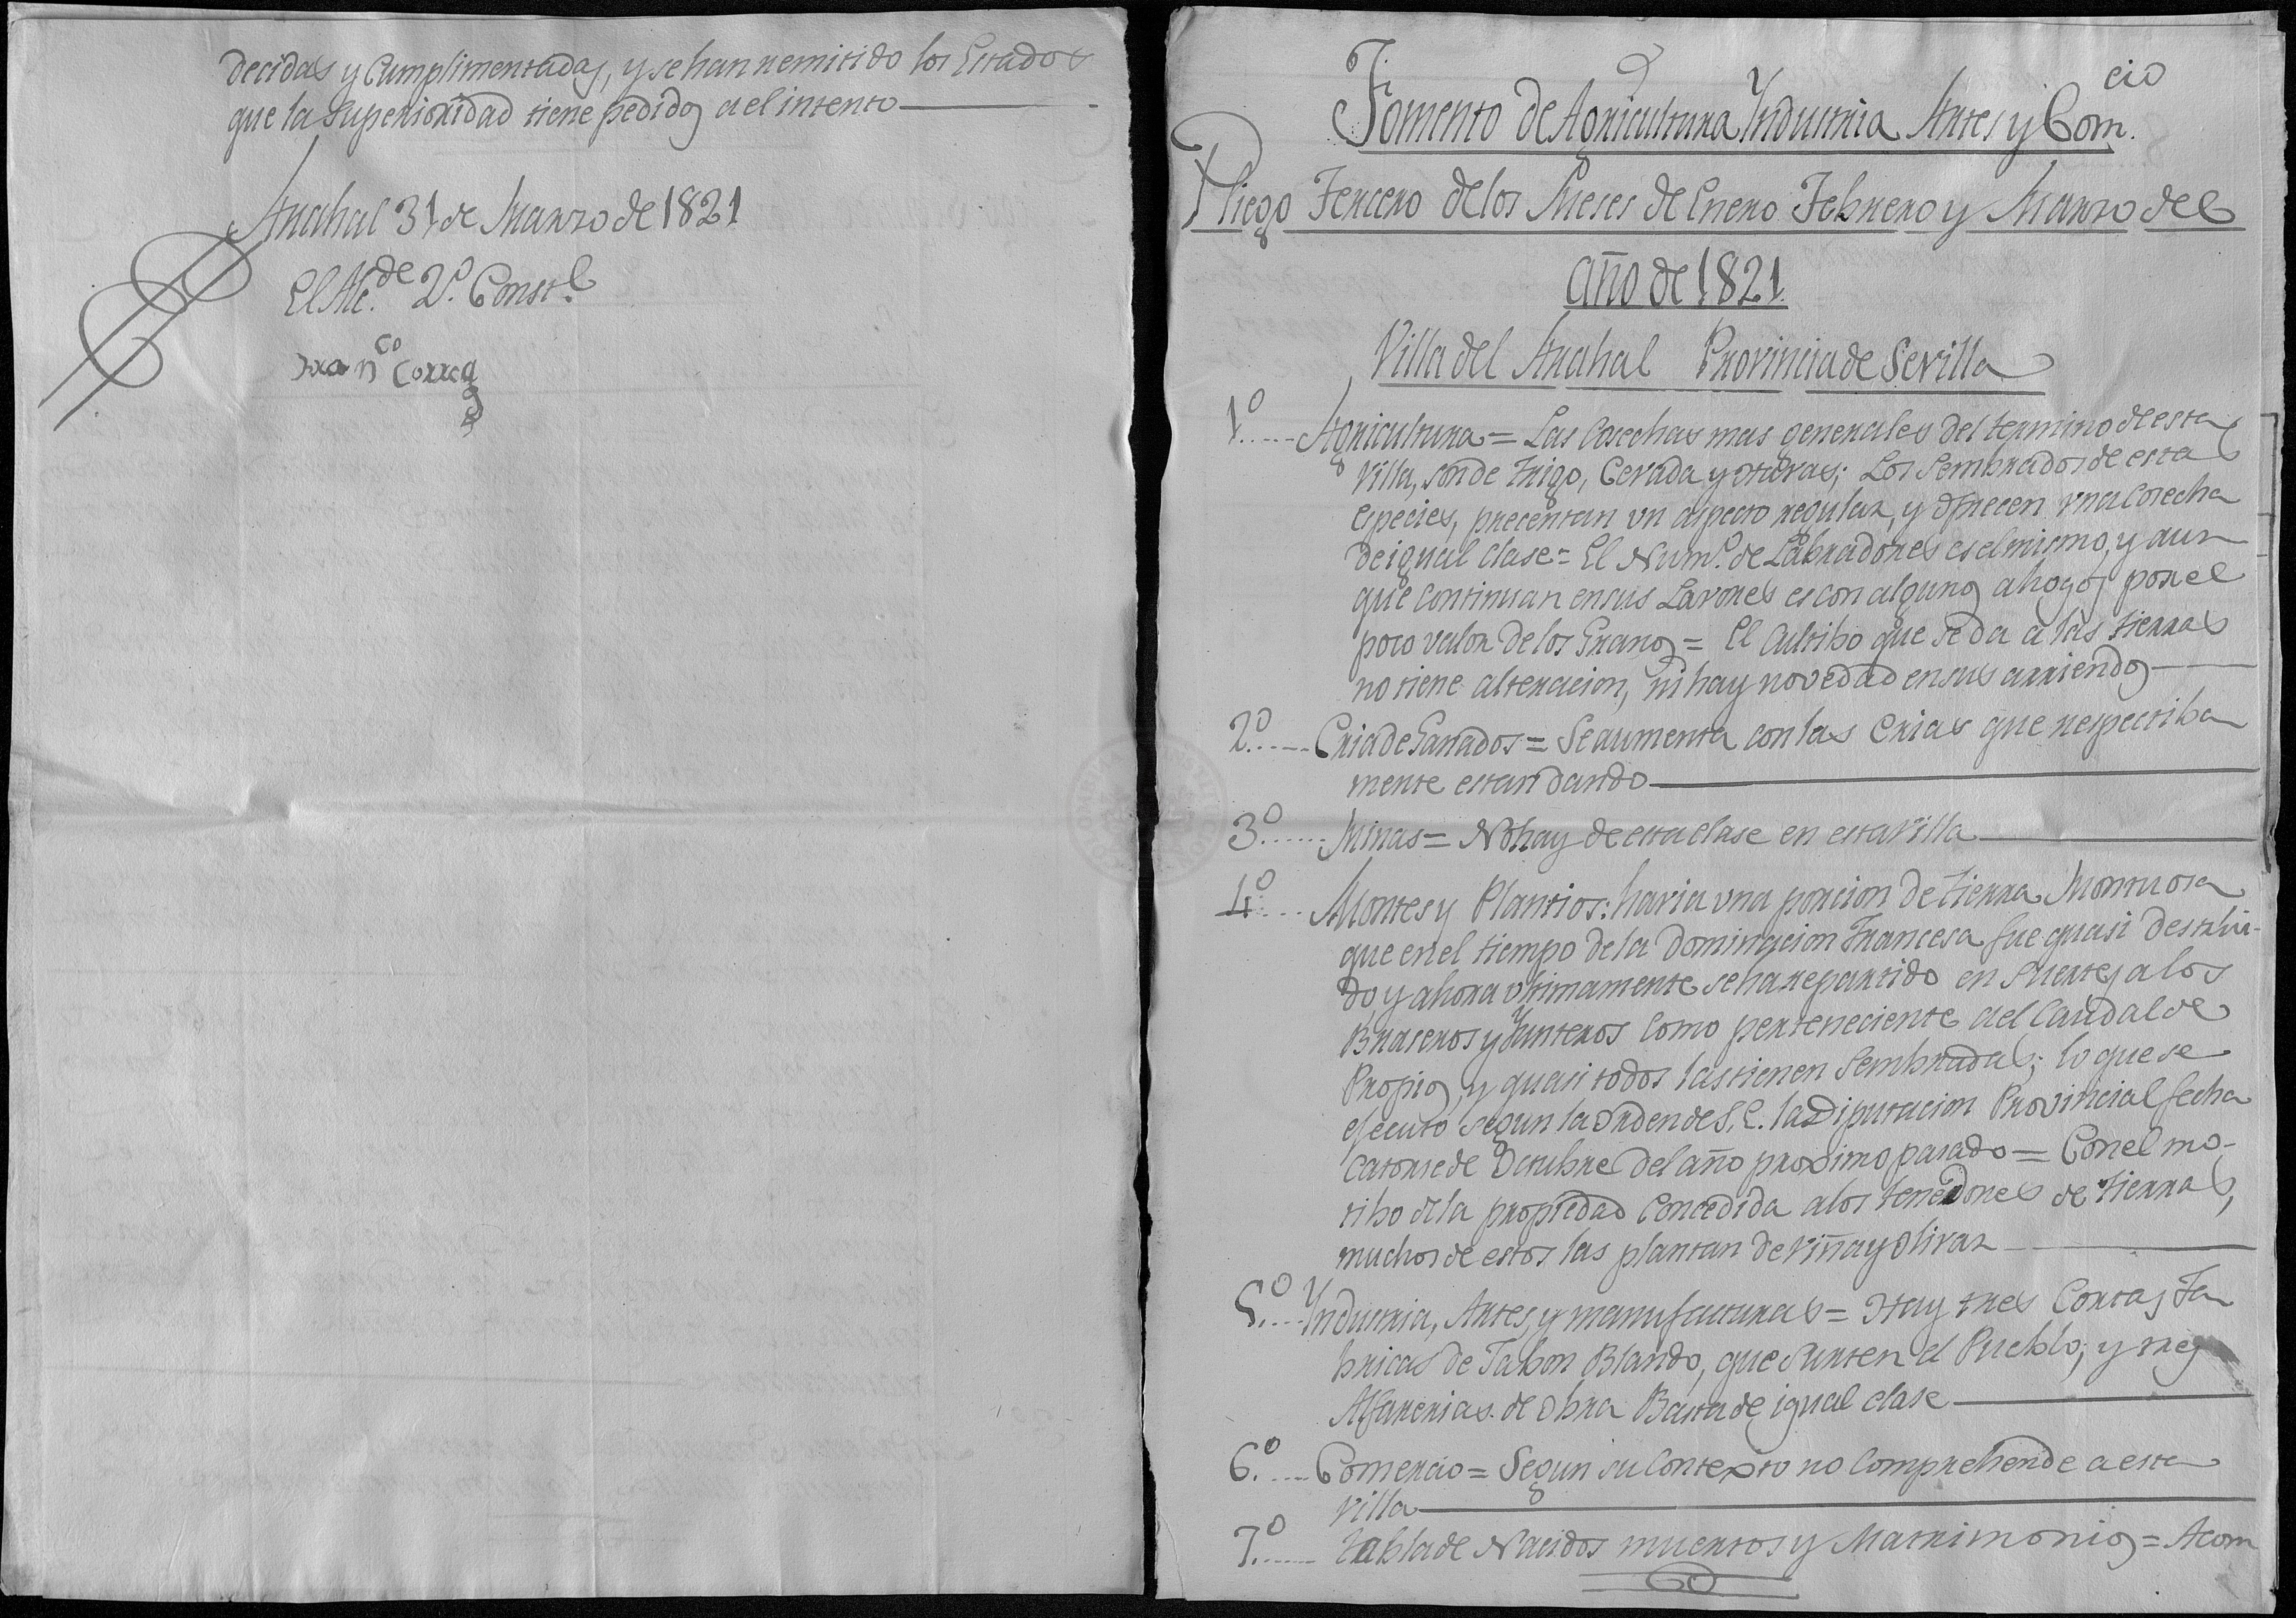 decidas y Cumplimentadas, y se han remitido los Estados
que la Superioridad tiene pedidos a el intento
Arahal 31 de Marzo de 1821
El Alc.de 2.º Const.l
Fran.co Correa
Fomento de Agricultura Yndustria Artes y Com.cio
Pliego Tercero de los Meses de Enero Febrero y Marzo del
año de 1821
Villa del Arahal Provincia de Sevilla
1.º Agricultura = Las Cosechas mas generales del termino de esta
Villa, son de Trigo, Cevada y Havas; Los Sembrados de estas
especies, precentan un aspecto regular, y ofrecen una Cosecha
de igual clase = El Num.º de Labradores es el mismo, y aun
que continuan en sus Lavores es con algunos ahogos por el
poco valor de los Granos = El Cultibo que se da a las tierras
no tiene alteracion, ni hay novedad en sus arriendos
2.º Cria de Ganados = Se aumenta con las Crias que respectiba
mente estan dando
3.º Minas = No hay de esta clase en esta Villa
4.º Montes y Plantios: havia una porcion de tierra Montuosa
que en el tiempo de la Dominacion Francesa fue quasi destrui-
do y ahora ultimamente se ha repartido en Suertes a los
Braseros y Yunteros como perteneciente a el Caudal de
Propios, y quasi todos las tienen Sembradas; lo que se
ejecuto segun la orden de S. E. la Diputacion Provincial fecha
Catorse de Octubre del año proximo pasado = Con el mo-
tibo de la propiedad Concedida a los tenedores de tierras,
muchos de estos las plantan de Viña y Olivar
5.º Yndustria, Artes, y manufacturas = Hay tres Cortas Fa
bricas de Jabon Blando, que surten el Pueblo; y tres
Alfarerias de Obra Basta de igual clase
6.º Comercio = Segun su Contexto no Comprehende a esta
Villa
7.º Tabla de Nacidos muertos y Matrimonios = Acom